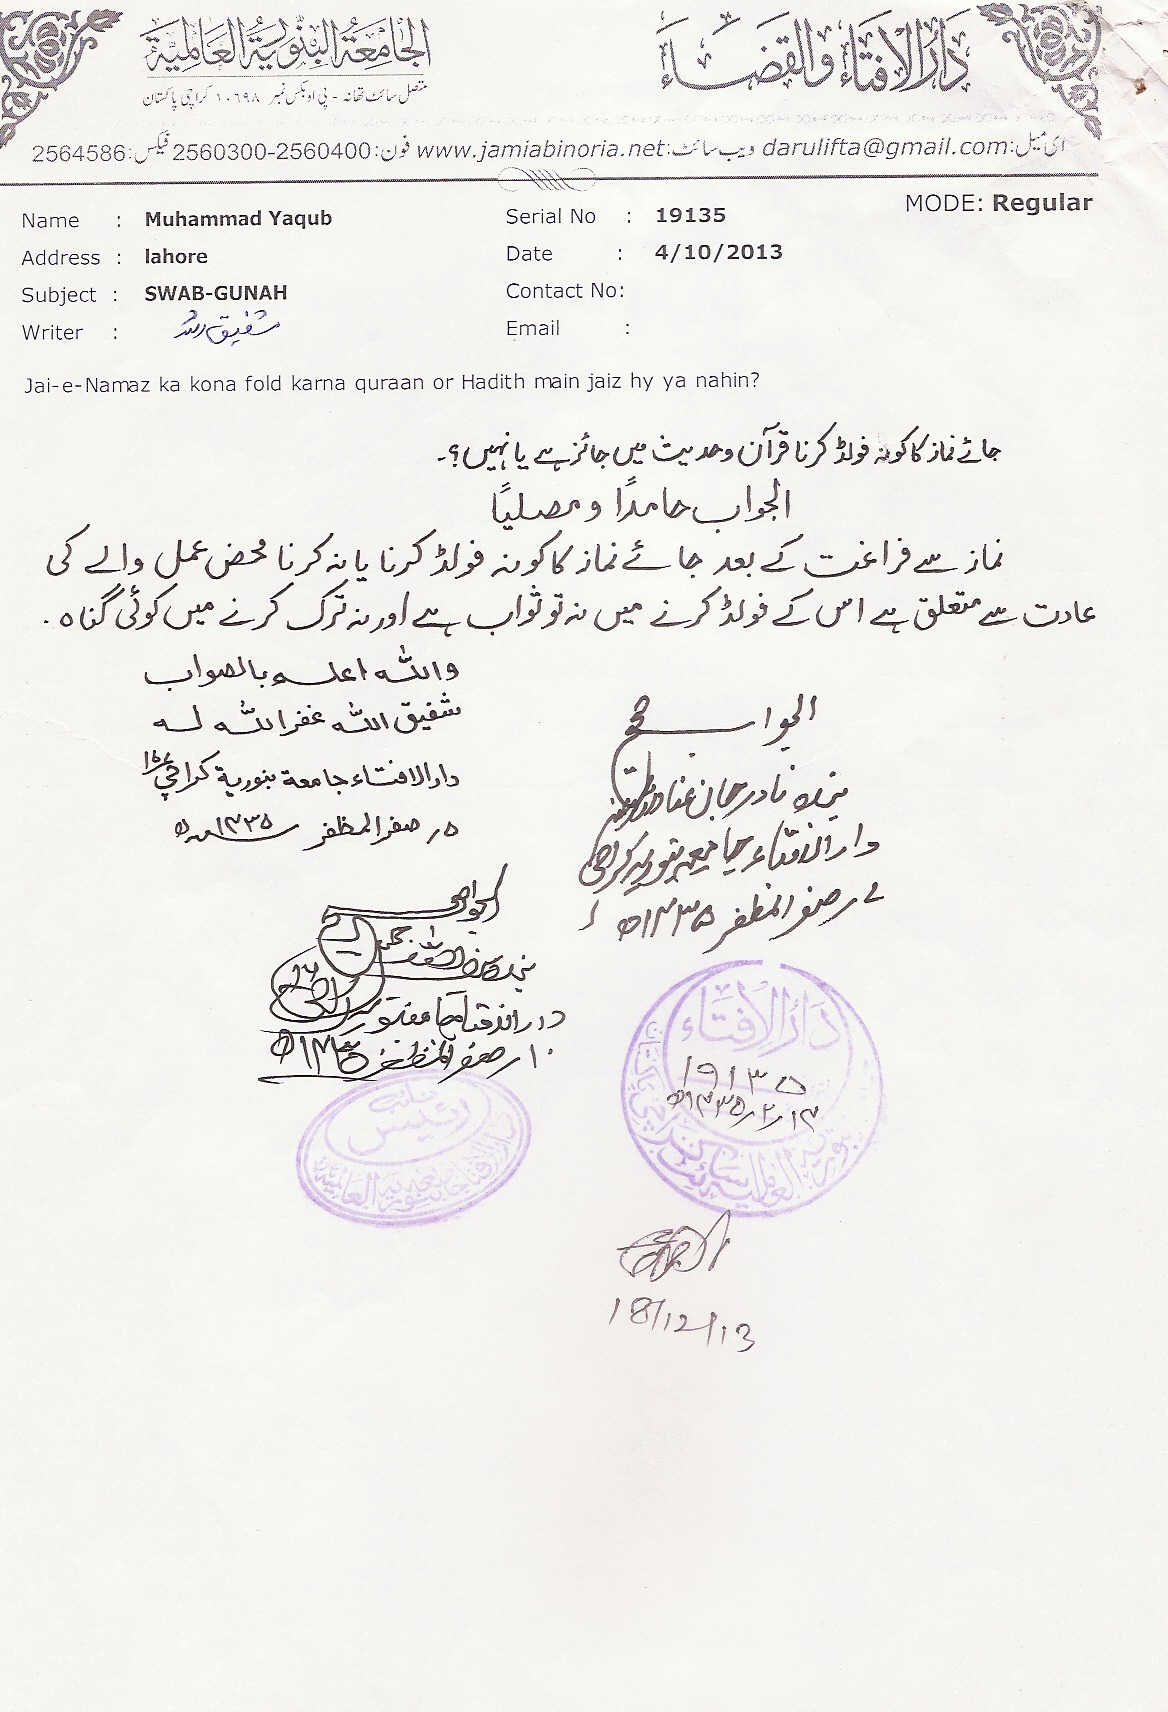 دَارُ الْاِفْتَاءِ وَالْقَضَاء
الجَامِعَةُ البَنُّورِيَّةُ العَالَمِيَّة
متصل سائٹ تھانہ - پی او بکس نمبر ۱۰۶۹۸ کراچی پاکستان
ای میل: darulifta@gmail.com ویب سائٹ: www.jamiabinoria.net فون: 2560300-2560400 فیکس: 2564586
MODE: Regular
Name : Muhammad Yaqub Serial No : 19135
Address : lahore Date : 4/10/2013
Subject : SWAB-GUNAH Contact No:
Writer : شفیق اللہ Email :
Jai-e-Namaz ka kona fold karna quraan or Hadith main jaiz hy ya nahin?
جائے نماز کا کونہ فولڈ کرنا قرآن وحدیث میں جائز ہے یا نہیں؟۔
الجواب حامدًا و مصلیًا
نماز سے فراغت کے بعد جائے نماز کا کونہ فولڈ کرنا یا نہ کرنا محض عمل والے کی
عادت سے متعلق ہے اس کے فولڈ کرنے میں نہ تو ثواب ہے اور نہ ترک کرنے میں کوئی گناہ .
واللہ اعلم بالصواب
شفیق اللہ غفر اللہ لہ
دارالافتاء جامعة بنورية کراچی
۵ / صفر المظفر ۱۴۳۵ھ
الجواب صحیح
بندہ نادر جان عفا اللہ عنہ
دارالافتاء جامعہ بنوریہ کراچی
صفر المظفر ۱۴۳۵ھ
الجواب صحیح
دارالافتاء جامعہ بنوریہ
۱۰ / صفر المظفر ۱۴۳۵ھ
دَارُ الْاِفْتَاء
۱۹۱۳۵
۱۴/۲/۱۴۳۵ھ
نائب
رئیس
18/12/13